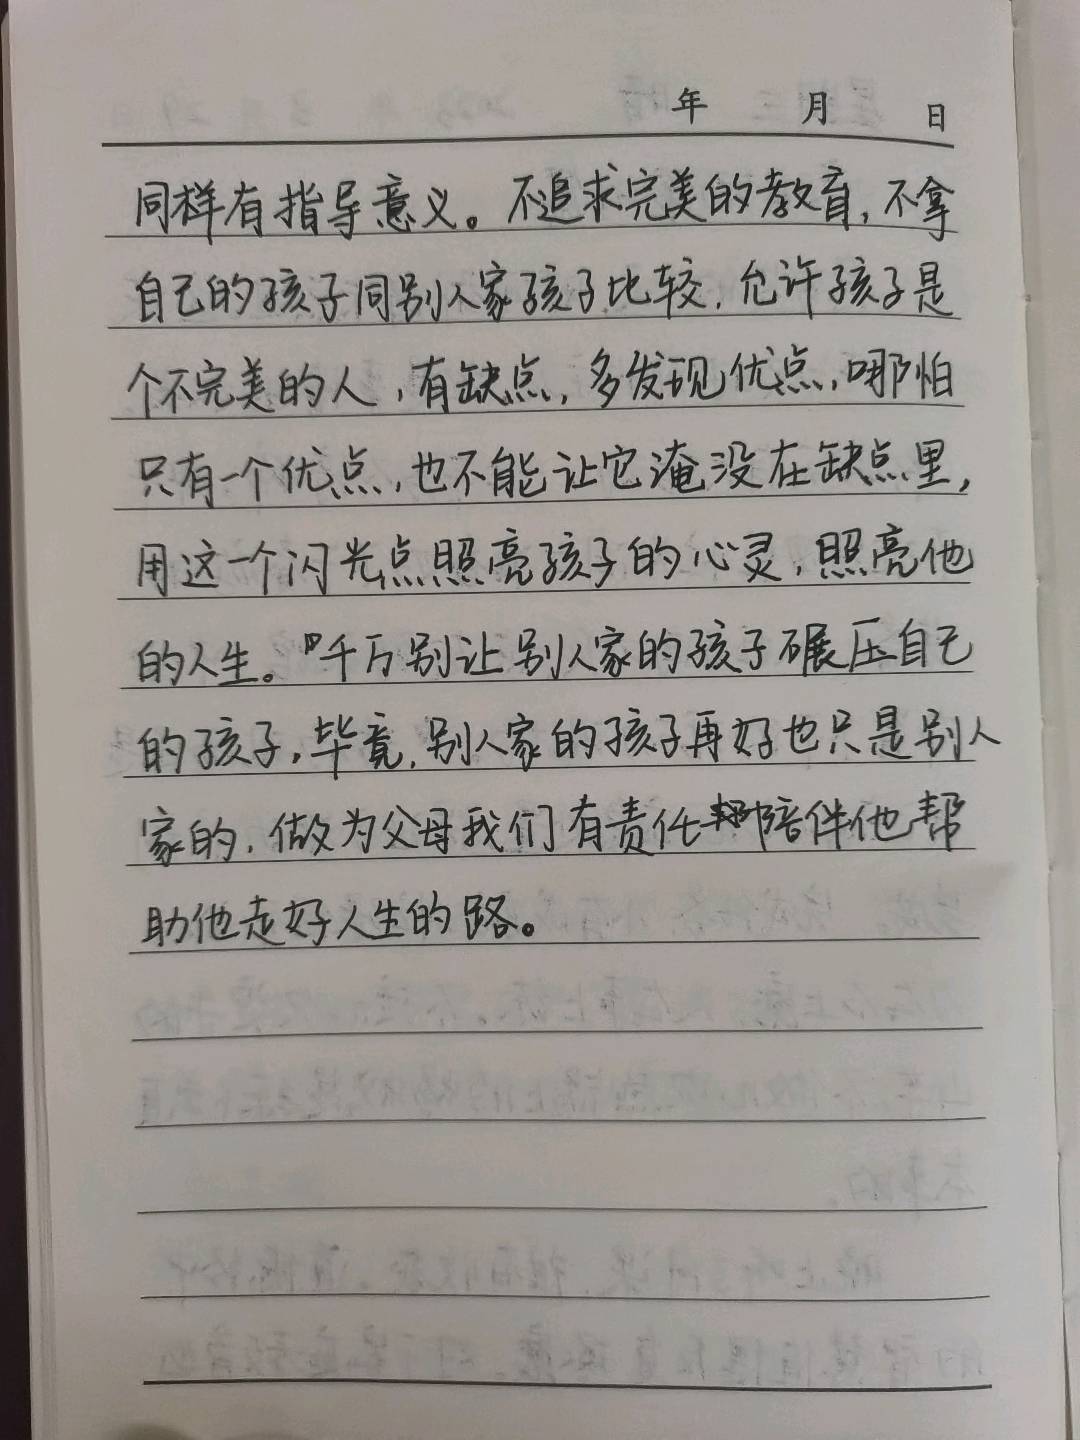 年 月 日
同样有指导意义。不追求完美的教育,不拿
自己的孩子同别人家孩子比较,允许孩子是
个不完美的人,有缺点,多发现优点,哪怕
只有一个优点,也不能让它淹没在缺点里,
用这一个闪光点照亮孩子的心灵,照亮他
的人生。千万别让别人家的孩子碾压自己
的孩子,毕竟,别人家的孩子再好也只是别人
家的,做为父母我们有责任陪伴他帮
助他走好人生的路。